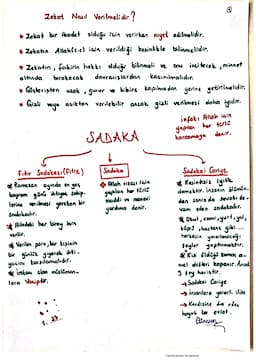 Zekat Nasıl Verilmelidir?
• Zekat bir ibadet olduğu için verirken niyet edilmelidir.
• Zekatın Allah(c.c) için verildiği kesinlikle bilinmelidir.
• Zekatın, fakirin hakkı olduğu bilinmeli ve onu incitecek, minnet
altında bırakacak davranışlardan kaçınılmalıdır.
• Gösterişten uzak, gurur ve kibire kapılmadan yerine getirilmelidir.
• Gizli veya açıktan verilebilir ancak gizli verilmesi daha iyidir.
infak: Allah için
yapılan her türlü
harcamaya denir.
SADAKA
Fıtır Sadakası (Fitre)
Ramazan ayında en geç
bayram günü ihtiyaç sahip-
lerine verilmesi gereken bir
sadakadır.
Ailedeki her birey için
verilir.
Verilen para, bir kişinin
bir günlük yiyecek ihti-
yacını karşılamalıdır.
İmkanı olan müslüman-
lara Vaciptir.
Sadaka
Allah rızası için
yapılan her türlü
maddi ve manevi
yardıma denir.
Sadakai Cariye
Kesintisiz iyilik
demektir. İnsanın ölümün-
den sonra da sevabı de-
vam eden sadakadır.
Okul, cami, yurt, yol,
köprü, hastane gibi
herkesin yararlanacağı
şeyler yaptırmaktır.
Kişi öldüğü zaman a-
mel defteri kapanır. Ancak
3 şey hariçtir.
→ Sadakai Cariye
→ insanlara yararlı ilim
→ Kendisine dua eden
hayırlı bir evlat.